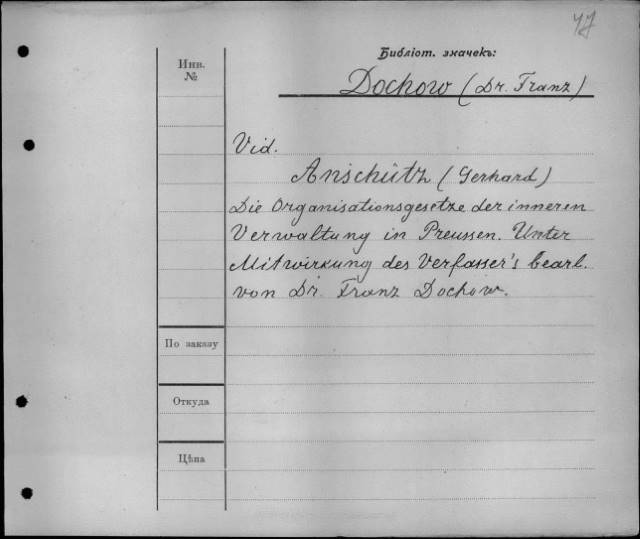 47
Библіот. значекъ:
Инв.
№
Dochow (Dr. Franz)
Vid.
Anschütz (Gerhard)
Die Organisationsgesetze der inneren
Verwaltung in Preussen. Unter
Mitwirkung des Verfasser's bearb.
von Dr. Franz Dochow.
По заказу
Откуда
Цѣна